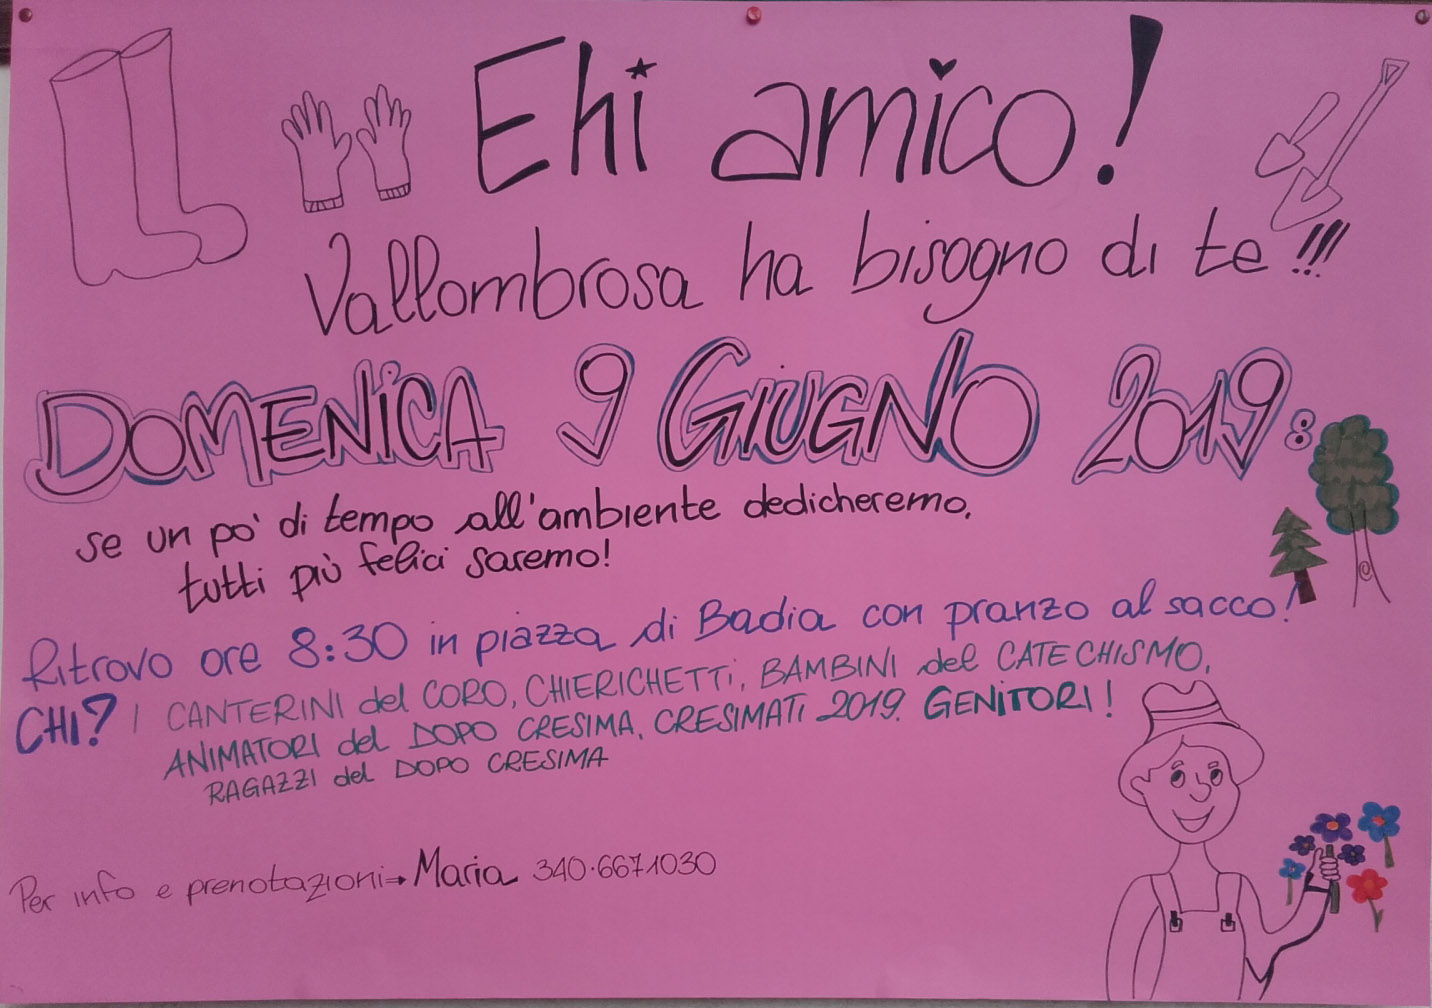 Ehi amico!
Vallombrosa ha bisogno di te !!!
DOMENICA 9 GIUGNO 2019:
se un po' di tempo all'ambiente dedicheremo,
tutti più felici saremo!
Ritrovo ore 8:30 in piazza di Badia con pranzo al sacco!
CHI? I CANTERINI del CORO, CHIERICHETTI, BAMBINI del CATECHISMO,
ANIMATORI del DOPO CRESIMA, CRESIMATI 2019. GENITORI!
RAGAZZI del DOPO CRESIMA
Per info e prenotazioni→ Maria 340·6671030